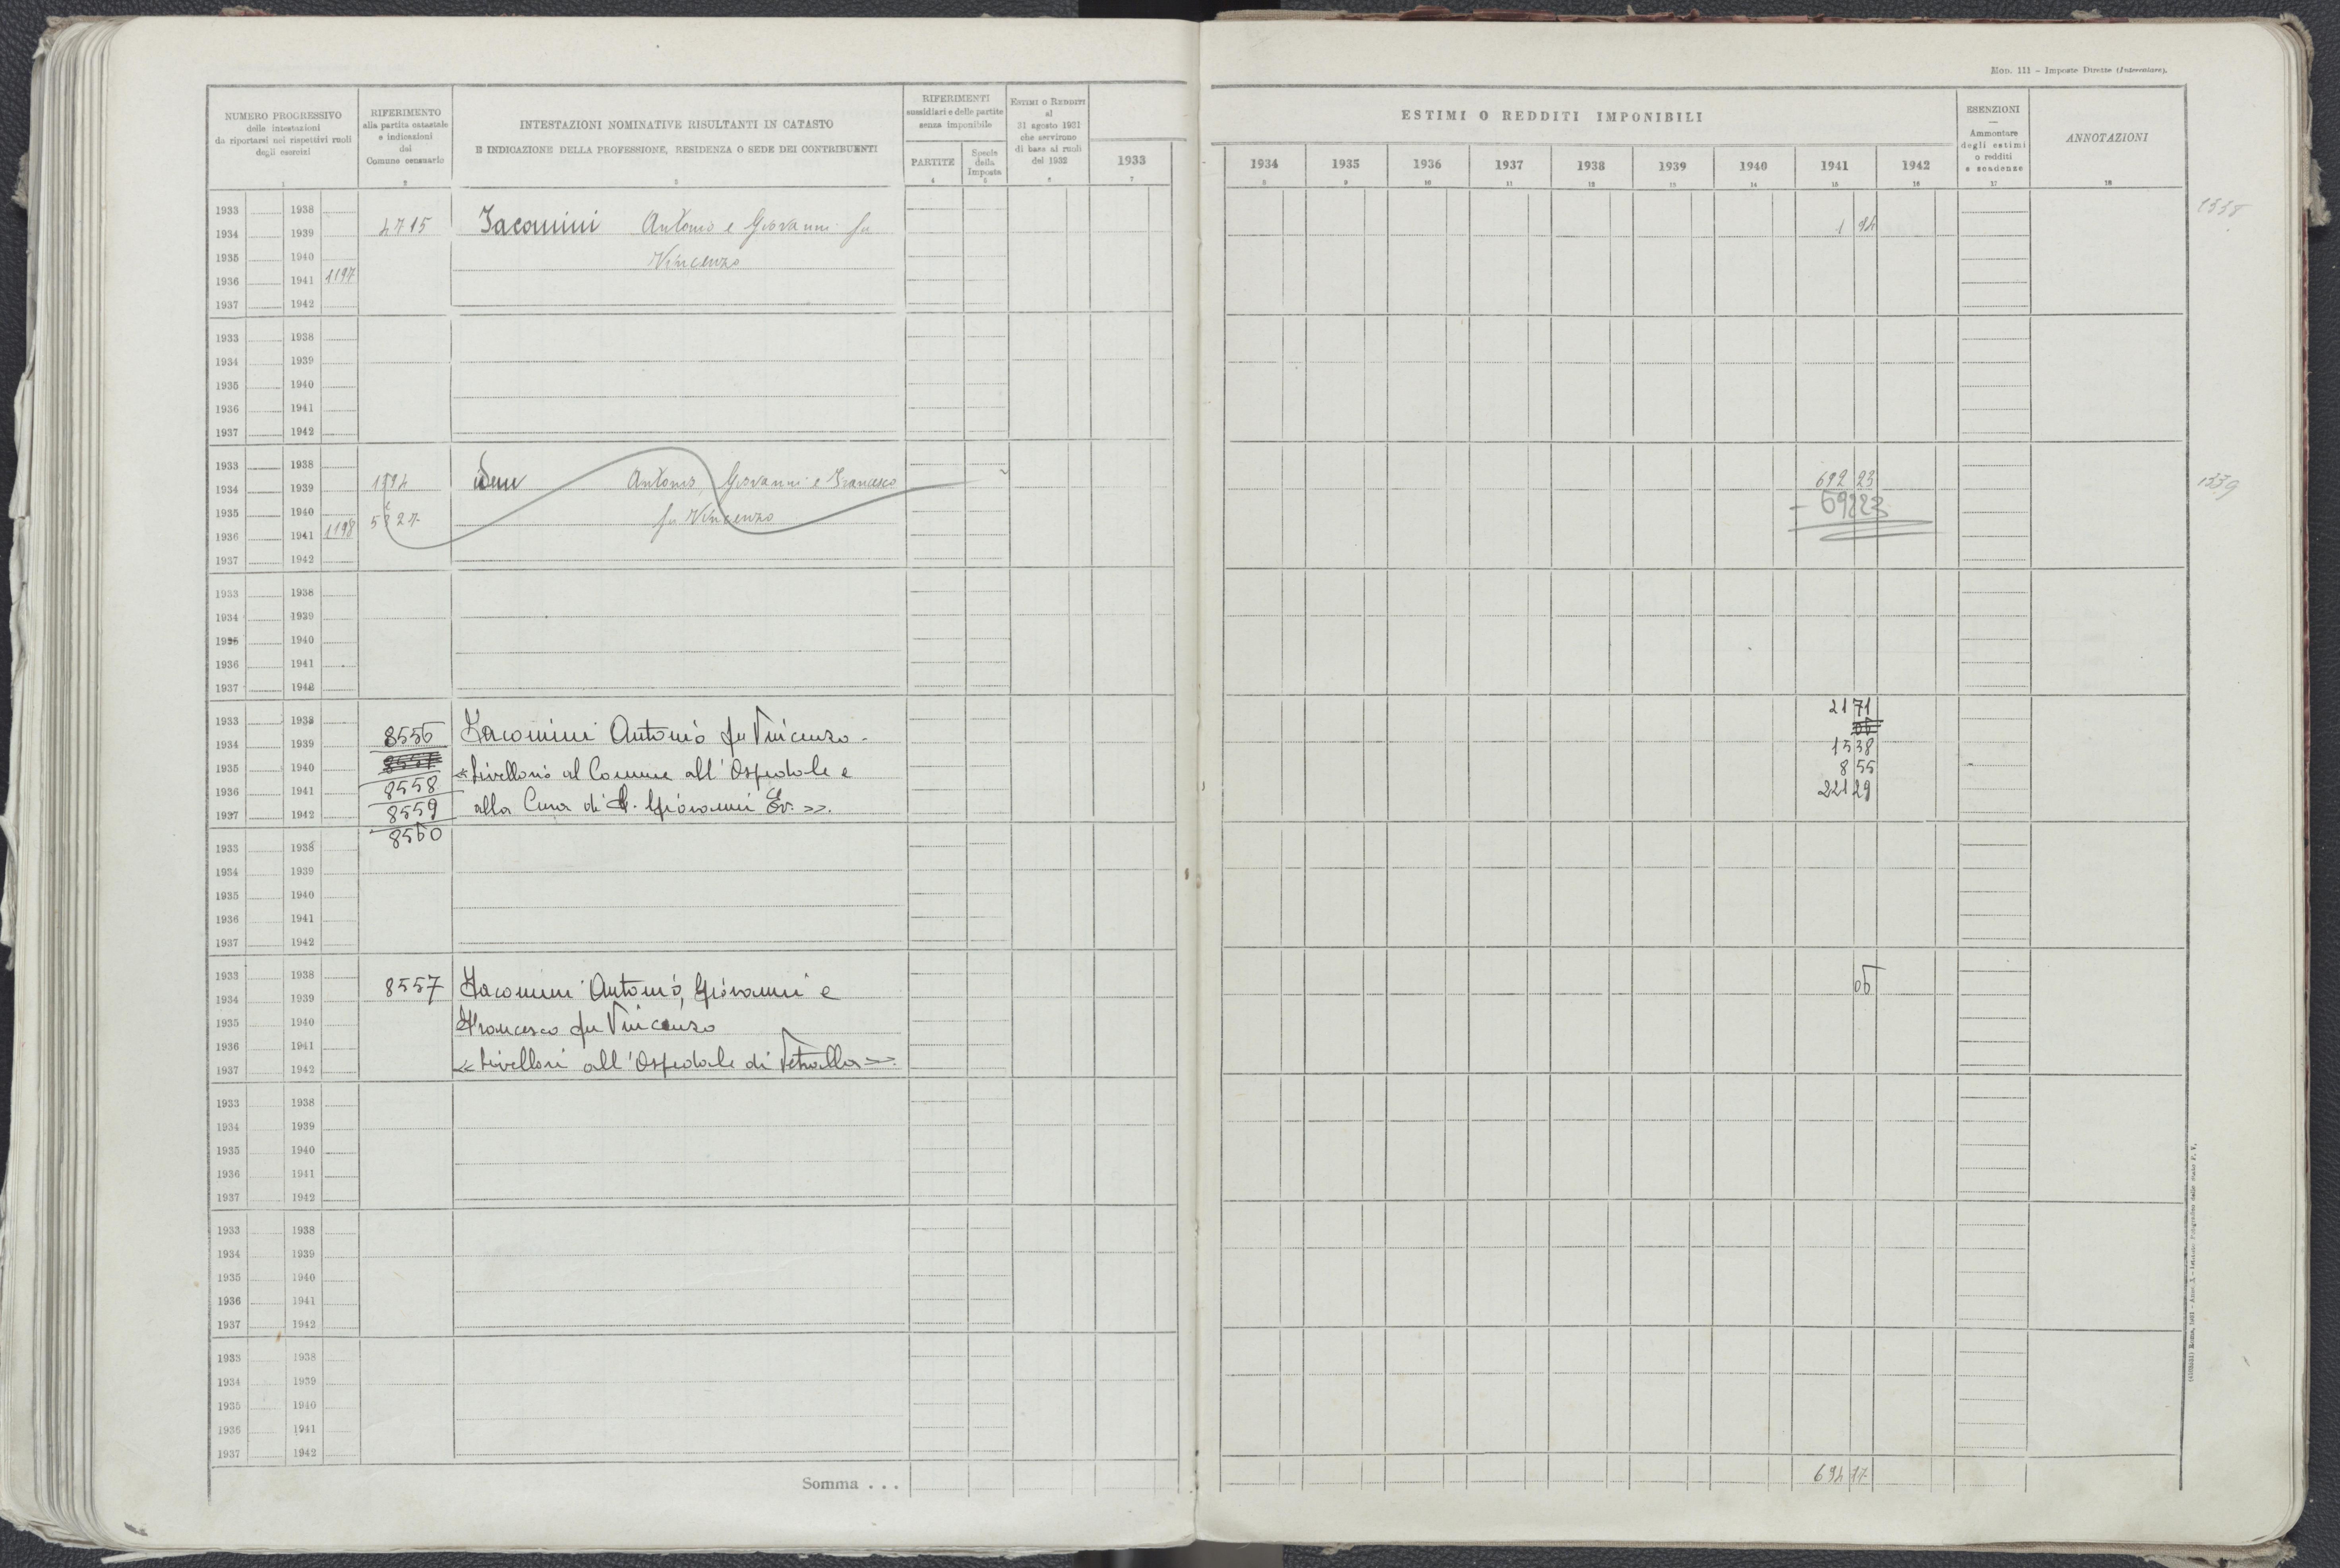 Mod. 111 - Imposte Dirette (Intercalare).
NUMERO PROGRESSIVO
delle intestazioni
da riportarsi nei rispettivi ruoli
degli esercizi
1
RIFERIMENTO
alla partita catastale
e indicazioni
del
Comune censuario
2
INTESTAZIONI NOMINATIVE RISULTANTI IN CATASTO
E INDICAZIONE DELLA PROFESSIONE, RESIDENZA O SEDE DEI CONTRIBUENTI
3
RIFERIMENTI
sussidiari e delle partite
senza imponibile
PARTITE
4
Specie
della
Imposta
5
ESTIMI O REDDITI
al
31 agosto 1931
che servirono
di base ai ruoli
del 1932
6
1933
7
ESTIMI O REDDITI IMPONIBILI
1934 1935 1936 1937 1938 1939 1940 1941 1942
8 9 10 11 12 13 14 15 16
ESENZIONI
—
Ammontare
degli estimi
o redditi
e scadenze
17
ANNOTAZIONI
18
1933 1938
1934 1939 4715 Iacomini Antonio e Giovanni fu 1 94 1338
1935 1940 Vincenzo
1936 1941 1197
1937 1942
1933 1938
1934 1939
1935 1940
1936 1941
1937 1942
1933 1938
1934 1939 idem Antonio, Giovanni e Francesco 692 23 1339
1935 1940 5827 fu Vincenzo - 692 23
1936 1941 1198
1937 1942
1933 1938
1934 1939
1935 1940
1936 1941
1937 1942
1933 1938 21 71
1934 1939 8556 Iacomini Antonio fu Vincenzo - 06
1935 1940 8557 «Livellario al Comune all'Ospedale e 15 38
1936 1941 8558 8 55
1937 1942 8559 alla Cura di S. Giovanni Ev. ». 221 29
8560
1933 1938
1934 1939
1935 1940
1936 1941
1937 1942
1933 1938
1934 1939 8557 Iacomini Antonio, Giovanni e 06
1935 1940 Francesco fu Vincenzo
1936 1941
1937 1942 «Livellari all'Ospedale di Vetralla».
1933 1938
1934 1939
1935 1940
1936 1941
1937 1942
1933 1938
1934 1939
1935 1940
1936 1941
1937 1942
1933 1938
1934 1939
1935 1940
1936 1941
1937 1942
Somma . . . 694 17